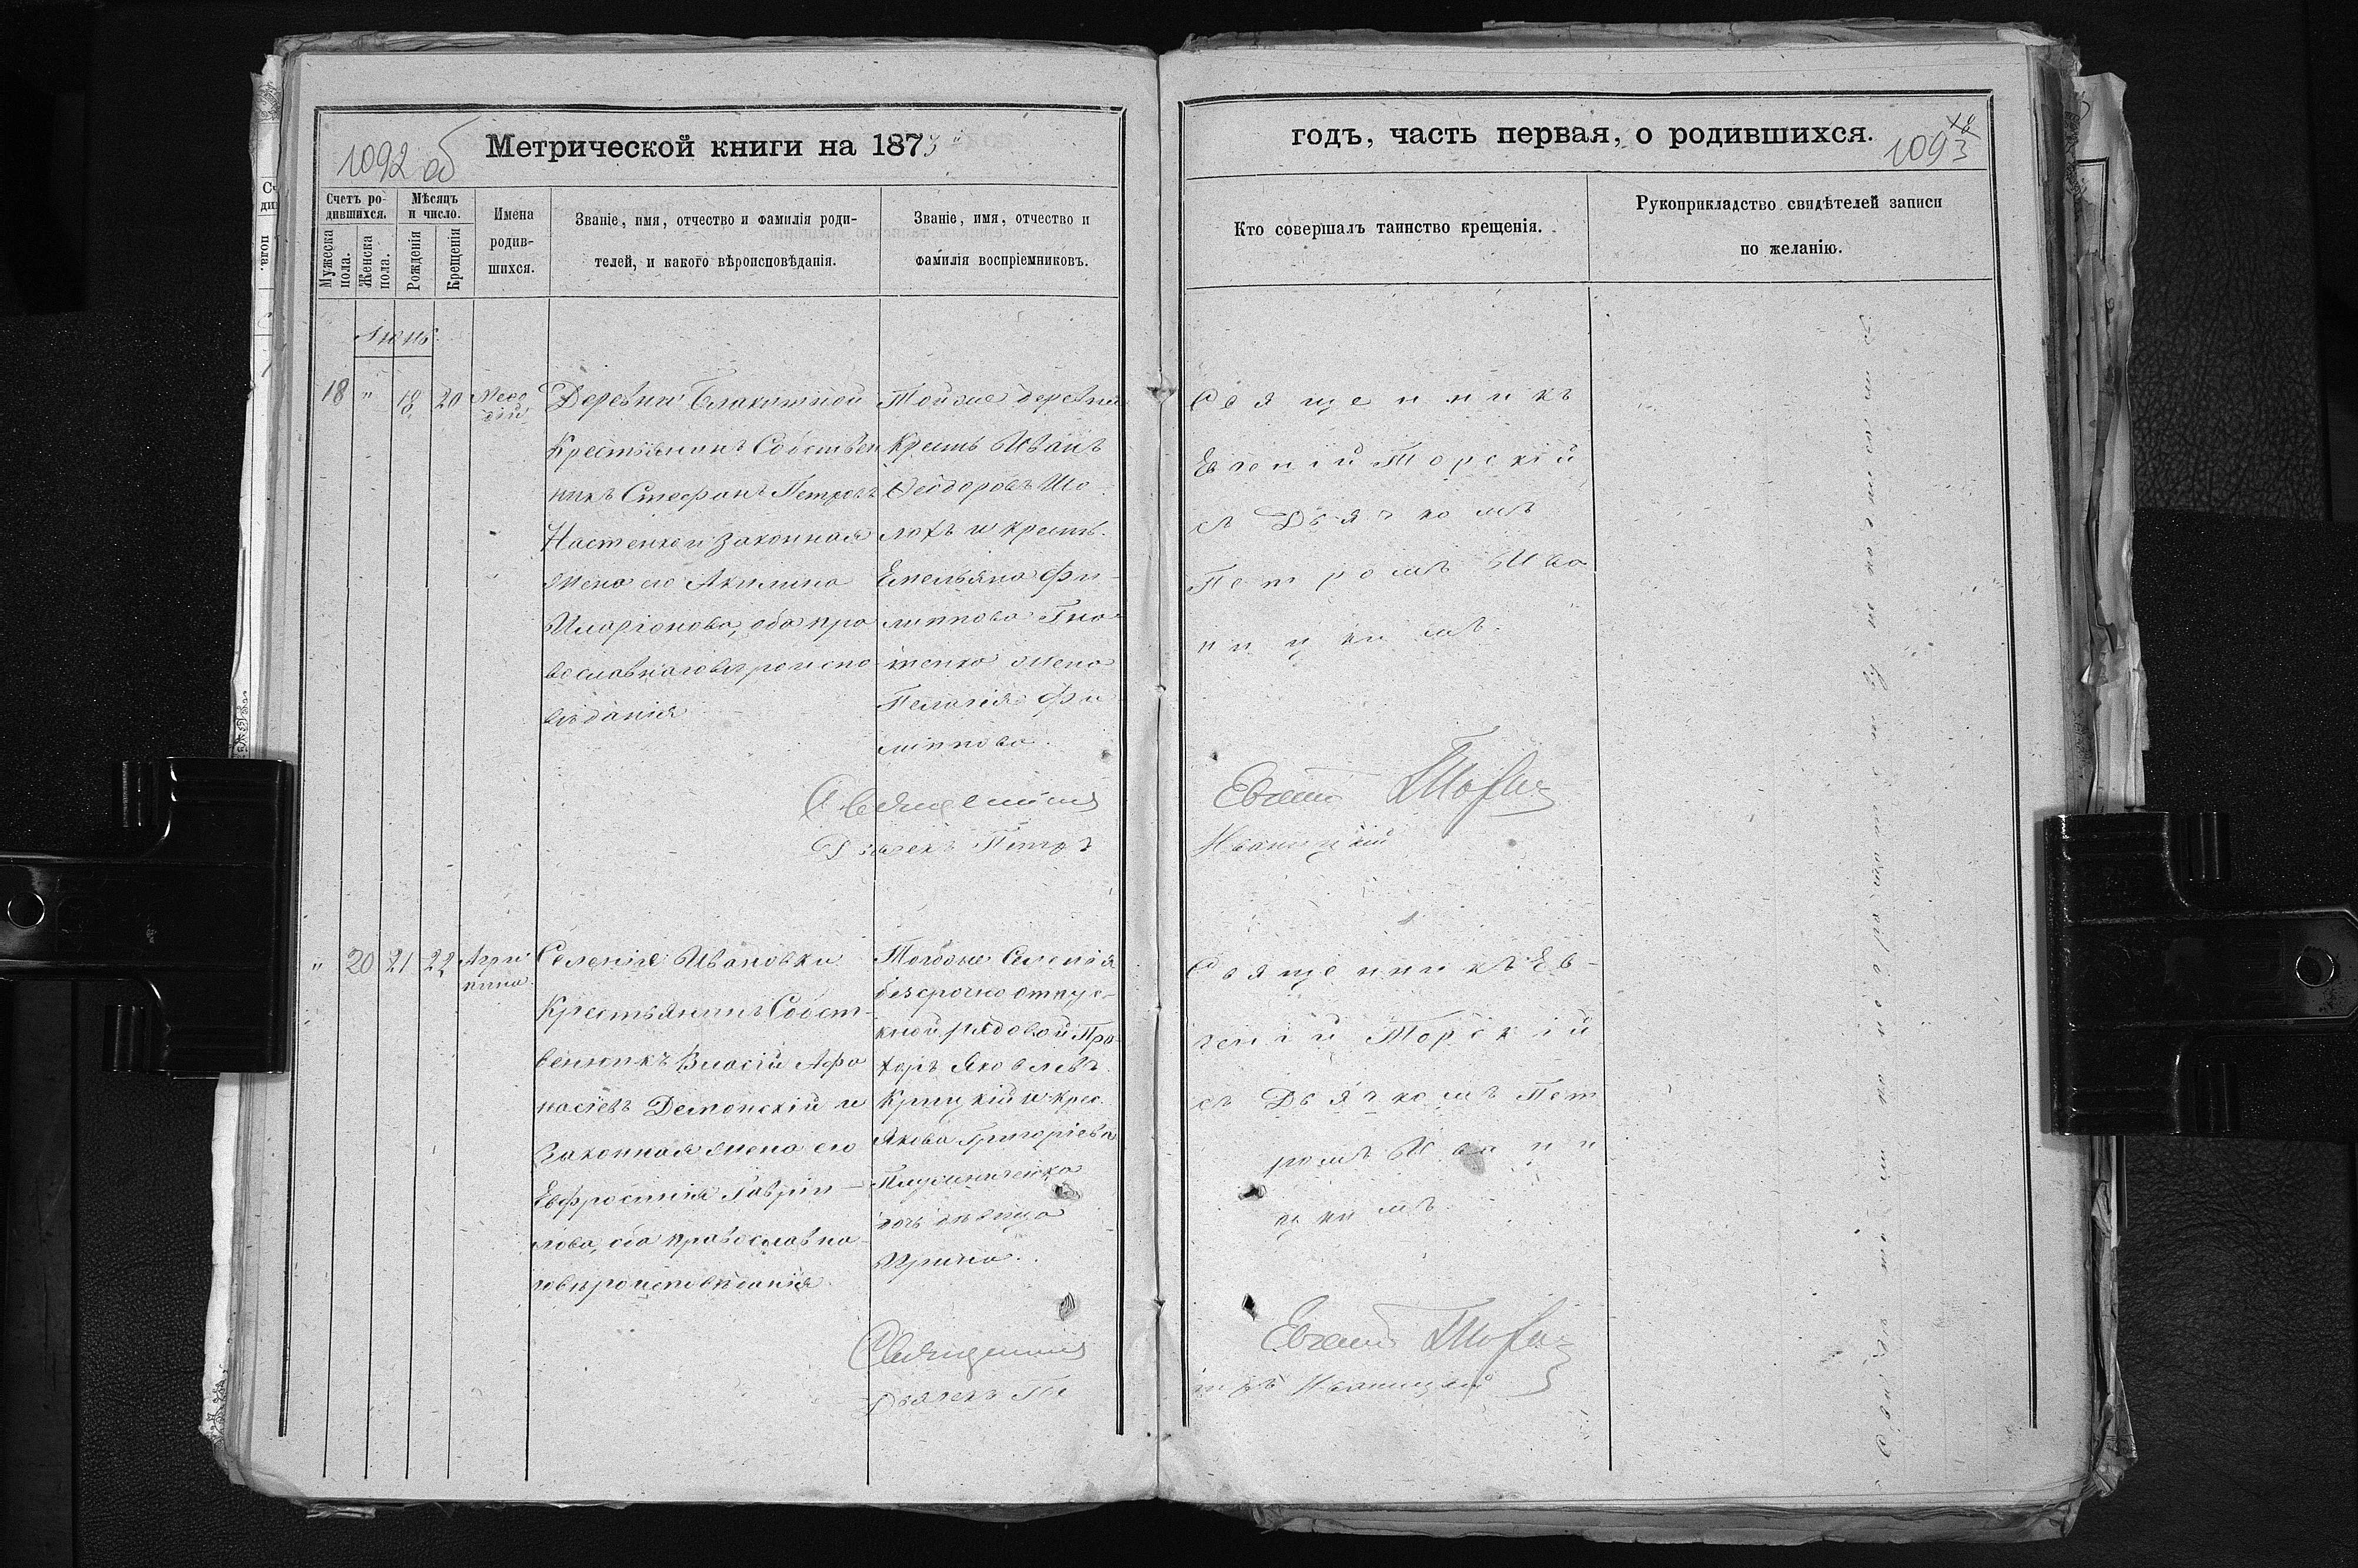 1092 об
Метрической книги на 1873й
Счетъ ро-
дившихся.
Мѣсяцъ
и число.
Мужеска
пола.
Женска
пола.
Рожденія
Крещенія
Имена
родив-
шихся.
Званіе, имя, отчество и фамилія роди-
телей, и какого вѣроисповѣданія.
Званіе, имя, отчество и
фамилія воспріемниковъ.
Іюнь
18 " 18 20
Меѳо
дій
Деревни Блакитной
Крестьянинъ Собствен
никъ Стефанъ Петровъ
Настенко и законная
жена его Акилина
Иларіонова, оба пра
вославнаго вѣроиспо
вѣданія
Той же деревни
Крест. Иванъ
Ѳеодоровъ Шо
лохъ и крест.
Емельяна Фи-
липпова Гна-
тенко жена
Пелагія Фи
липпова.
Священникъ
Дьячекъ Петръ
" 20 21 22
Агри
пина
Селенія Ивановки
Крестьянинъ Собст-
венникъ Власій Афа
насіевъ Демонскій и
Законная жена его
Евфросинія Гавріи-
лова, оба православна-
го вѣроисповѣданія.
Тогоже Селенія
безсрочно отпус-
кной рядовой Про
хоръ Яковлевъ
Крицкій и крес.
Якова Григоріева
дочь дѣвица
Ирина.
Священникъ
Дьячекъ Пе
годъ, часть первая, о родившихся.
1093
Кто совершалъ таинство крещенія.
Рукоприкладство свидѣтелей записи
по желанію.
Священникъ
Евгеній Торскій
съ Дьячкомъ
Петромъ Ива
ницкимъ.
Евгеній Торскій
Иваницкій
Священникъ Ев-
геній Торскій
съ Дьячкомъ Пет
ромъ Иваниц
кимъ.
Евгеній Торскій
тръ Иваницкій